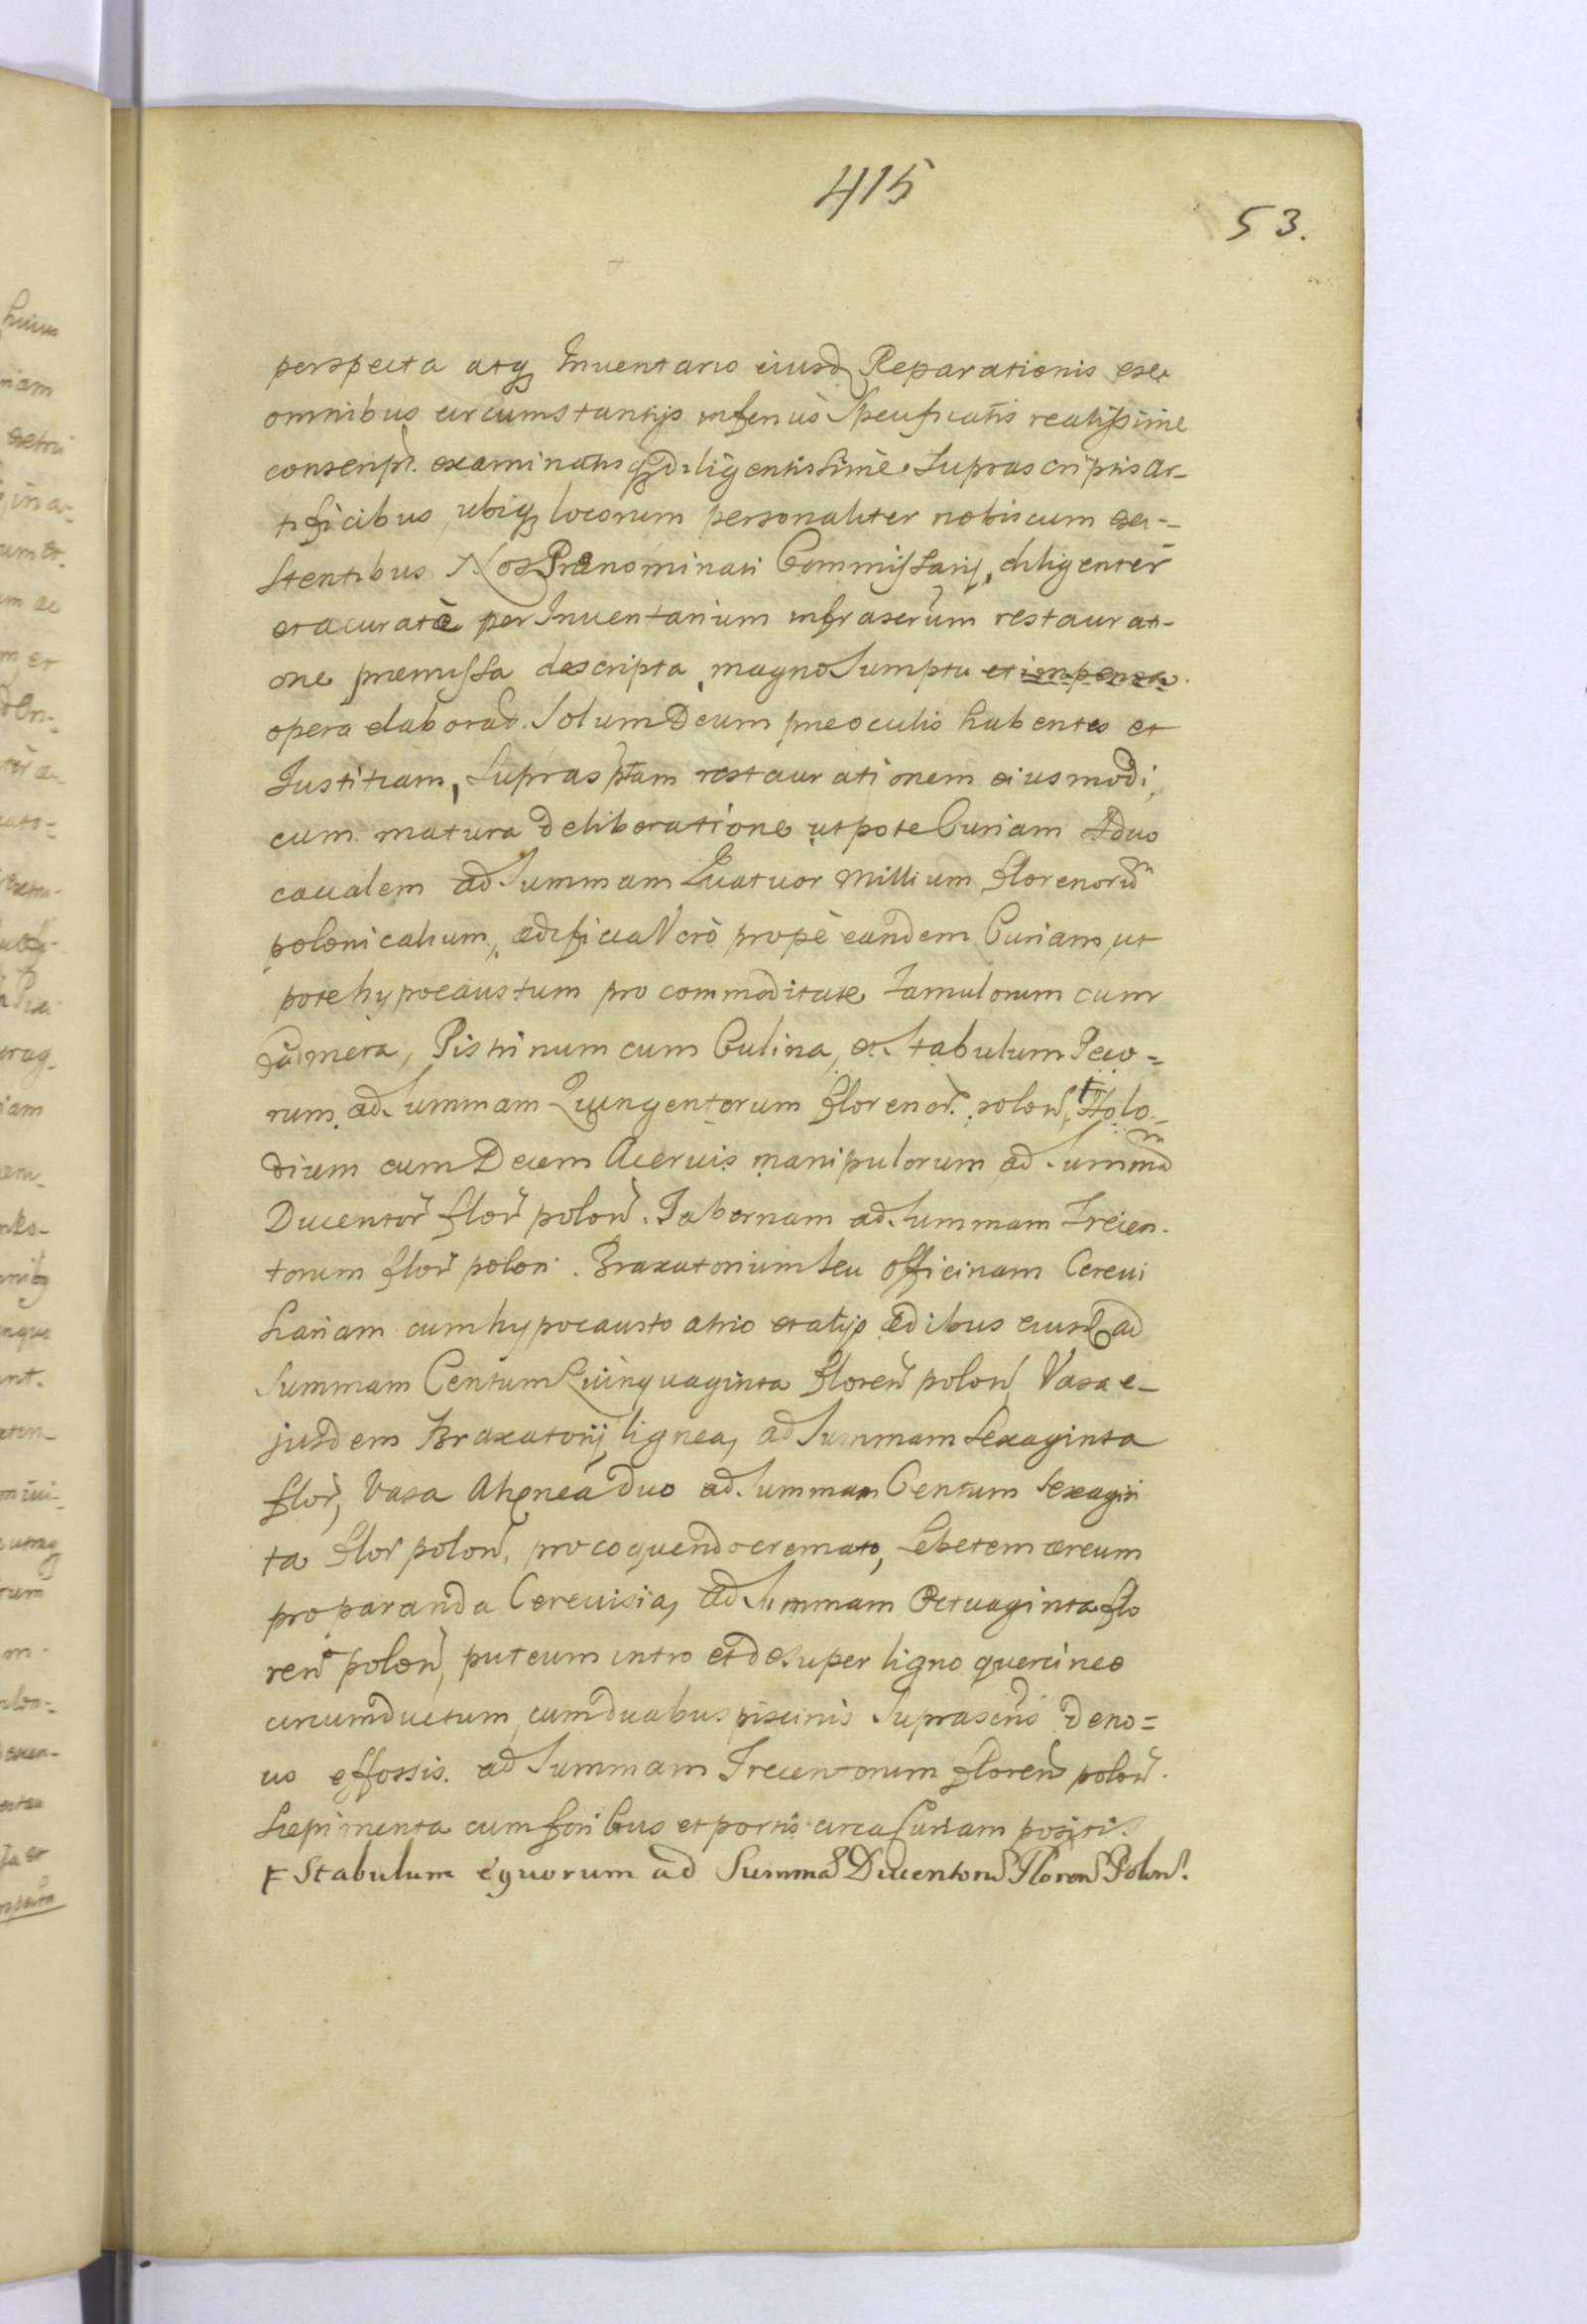 415
53.
perspecta atq Inuentario eiusd Reparationis ex
omnibus circumstantijs inferius Specificatis realissime
conscript. examinatis q diligentissime Suprascriptis ar-
tificibus ubiq locorum personaliter nobiscum exi-
stentibus Nos Prænominati Commissarij, diligenter
et acuratè per Inuentarium infrascrum restaurati-
one præmissa descripta, magno Sumptu et impensa
opera elaborat. Solum Deum præ oculis habentes et
Iustitiam, Suprasptam restaurationem eiusmodi,
cum matura deliberatione utpote Curiam Aduo
caualem ad Summam Quatuor Millium Florenorum
polonicalium, ædificia Vero propè eandem Curiam, ut
pote hypocaustum pro commoditate Famulorum cum
Camera, Pistrinum cum Culina, et Stabulum Peco=
rum ad Summam Quingentorum Florenor. polon, ŧ Holo-
dium cum Decem Aceruis manipulorum ad Summam
Ducentor flor polon. Tabernam ad Summam Trecen-
torum flor polon. Braxatorium seu officinam Cereui
siariam cum hypocausto atrio et alijs ædibus eiusd ad
Summam Centum Quinquaginta Floren polon, Vasa e-
jusdem Braxatorij lignea, ad Summam Sexaginta
flor, Vasa Ahenea duo ad Summam Centum sexagin
ta Flor polon, pro coquendo cremato, Lebetem æreum
pro paranda Cereuisia, ad Summam Octuaginta flo
ren polon, puteum intro et desuper ligno quercineo
circumductum, cum duabus piscinis Suprascris deno=
uo effossis. ad Summam Trecentorum floren polon.
Sæpimenta cum foribus et portis circa Curiam positis
ŧ Stabulum equorum ad Summa Ducentoru Floren Polon.